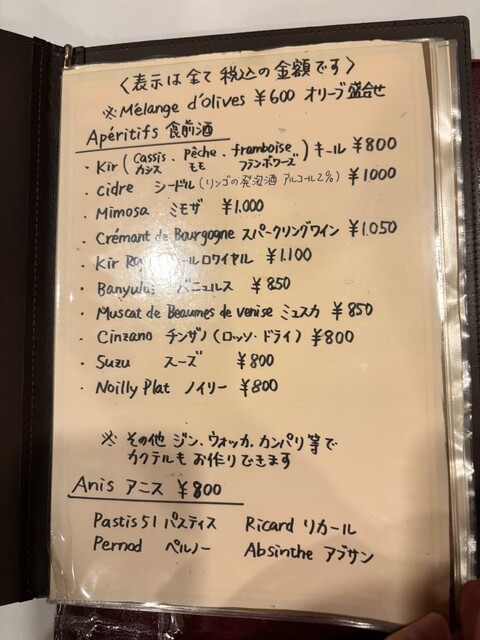 〈表示は全て税込の金額です〉
※Mélange d'Olives ¥600 オリーブ盛合せ
Apéritifs 食前酒
・Kir (Cassis カシス・Pêche モモ・framboise フランボワーズ) キール ¥800
・Cidre シードル (リンゴの発泡酒 アルコール2%) ¥1000
・Mimosa ミモザ ¥1.000
・Crémant de Bourgogne スパークリングワイン ¥1.050
・Kir ロワイヤル ¥1.100
・Banyuls バニュルス ¥850
・Muscat de Beaumes de venise ミュスカ ¥850
・Cinzano チンザノ (ロッソ・ドライ) ¥800
・Suzu スーズ ¥800
・Noilly Plat ノイリー ¥800
※ その他 ジン、ウォッカ、カンパリ等で
カクテルも お作りできます
Anis アニス ¥800
Pastis 51 パスティス Ricard リカール
Pernod ペルノー Absinthe アブサン